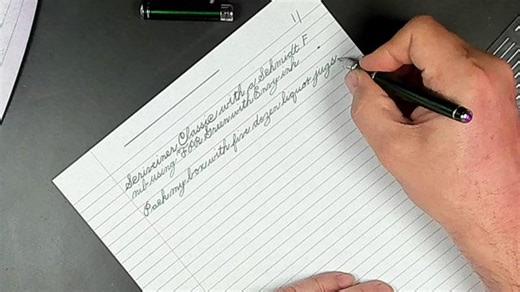 11
Scriveiner Classic with a Schmidt F
nib using FPR Green with Envy ink.
Pack my box with five dozen liquor jugs.